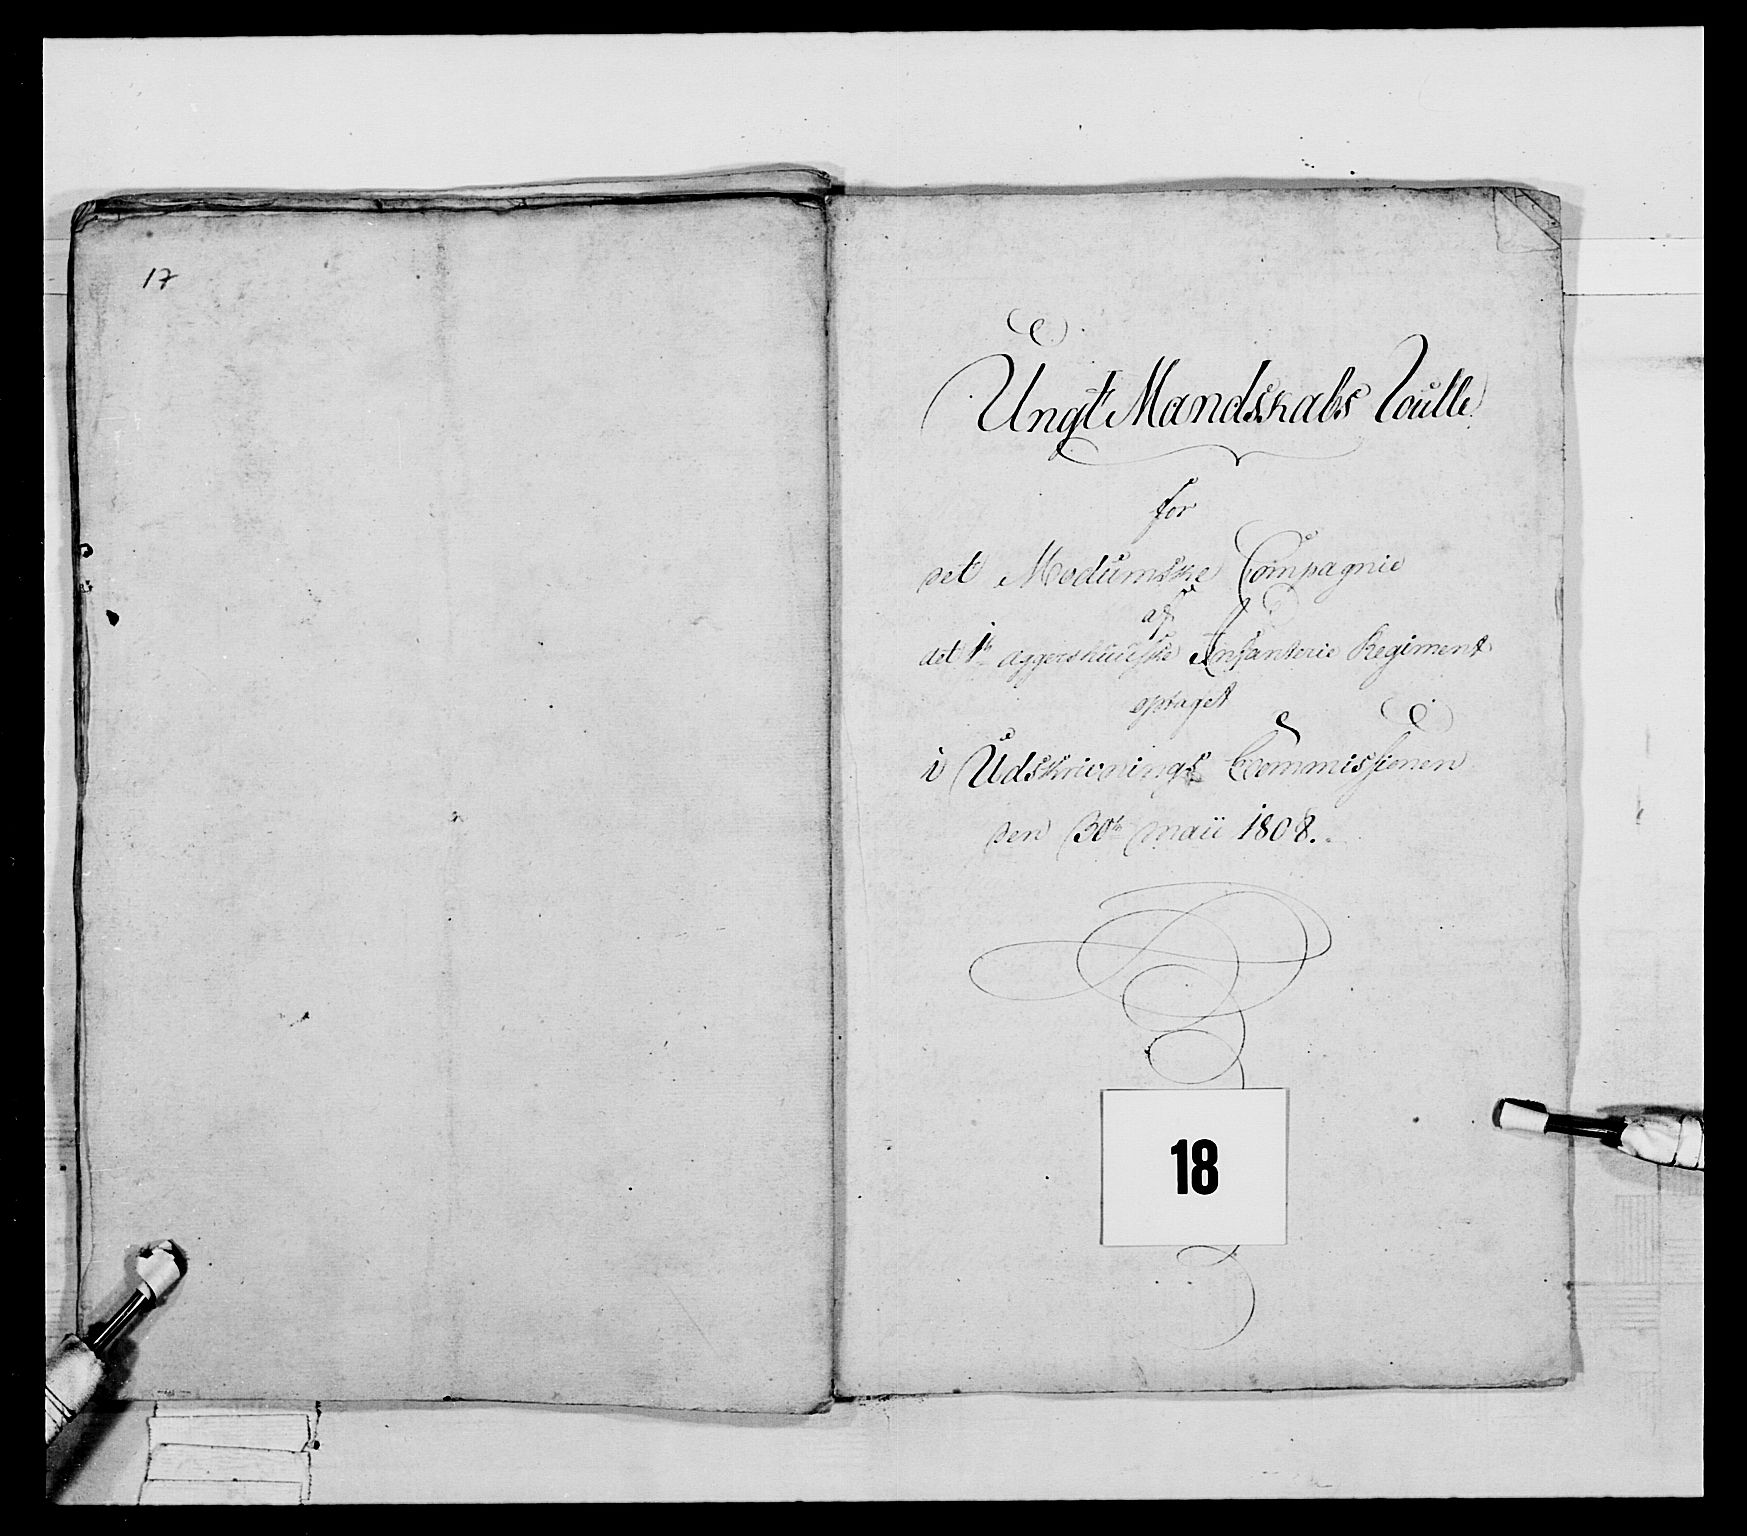 17
Ungt Mandskabs Roulle
for
det Modumske Compagnie
af
det 1te Aggershuusiske Infanterie Regiment
optaget
i Udskrivnings Commissionen
den 30te Maii 1808.
18